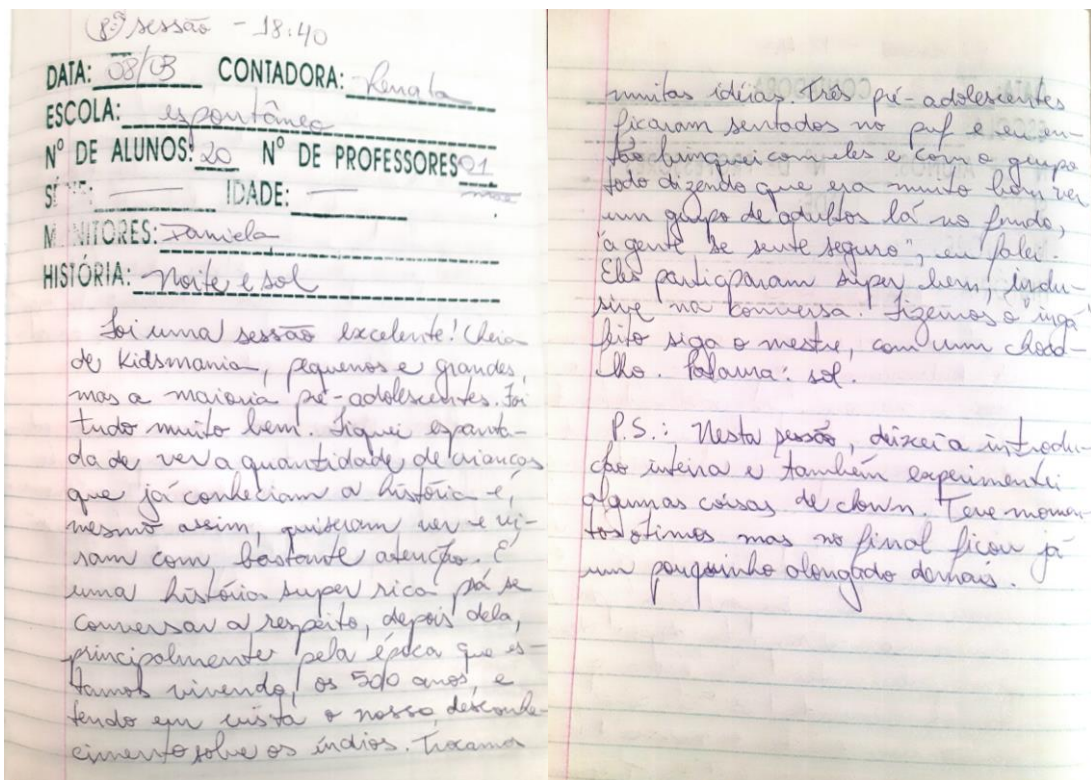 8ª sessão - 18:40
DATA: 08/03 CONTADORA: Renata
ESCOLA: espontânea
Nº DE ALUNOS: 20 Nº DE PROFESSORES 01
SÉRIE: — IDADE: —
MONITORES: Daniela
HISTÓRIA: Noite e sol
Foi uma sessão excelente! Cheia
de Kidsmania, pequenos e grandes,
mas a maioria pré-adolescentes. Foi
tudo muito bem. Fiquei espanta-
da de ver a quantidade de crianças
que já conheciam a história e,
mesmo assim, quiseram ver e vi-
ram com bastante atenção. É
uma história super rica pra se
conversar a respeito, depois dela,
principalmente pela época que es-
tamos vivendo, os 500 anos, e
tendo em vista o nosso desconhe-
cimento sobre os índios. Trocamos
muitas idéias. Três pré-adolescentes
ficaram sentados no puf e eu en-
tão brinquei com eles e com o grupo
todo dizendo que era muito bom ver
um grupo de adultos lá no fundo,
"a gente se sente seguro", eu falei.
Eles participaram super bem, inclu-
sive na conversa. Fizemos o
siga o mestre, com um choca-
lho. Palavra: sol.
P.S.: Nesta sessão, deixei a introdu-
ção inteira e também experimentei
algumas coisas de clown. Teve momen-
tos ótimos mas no final ficou já
um pouquinho alongado demais.